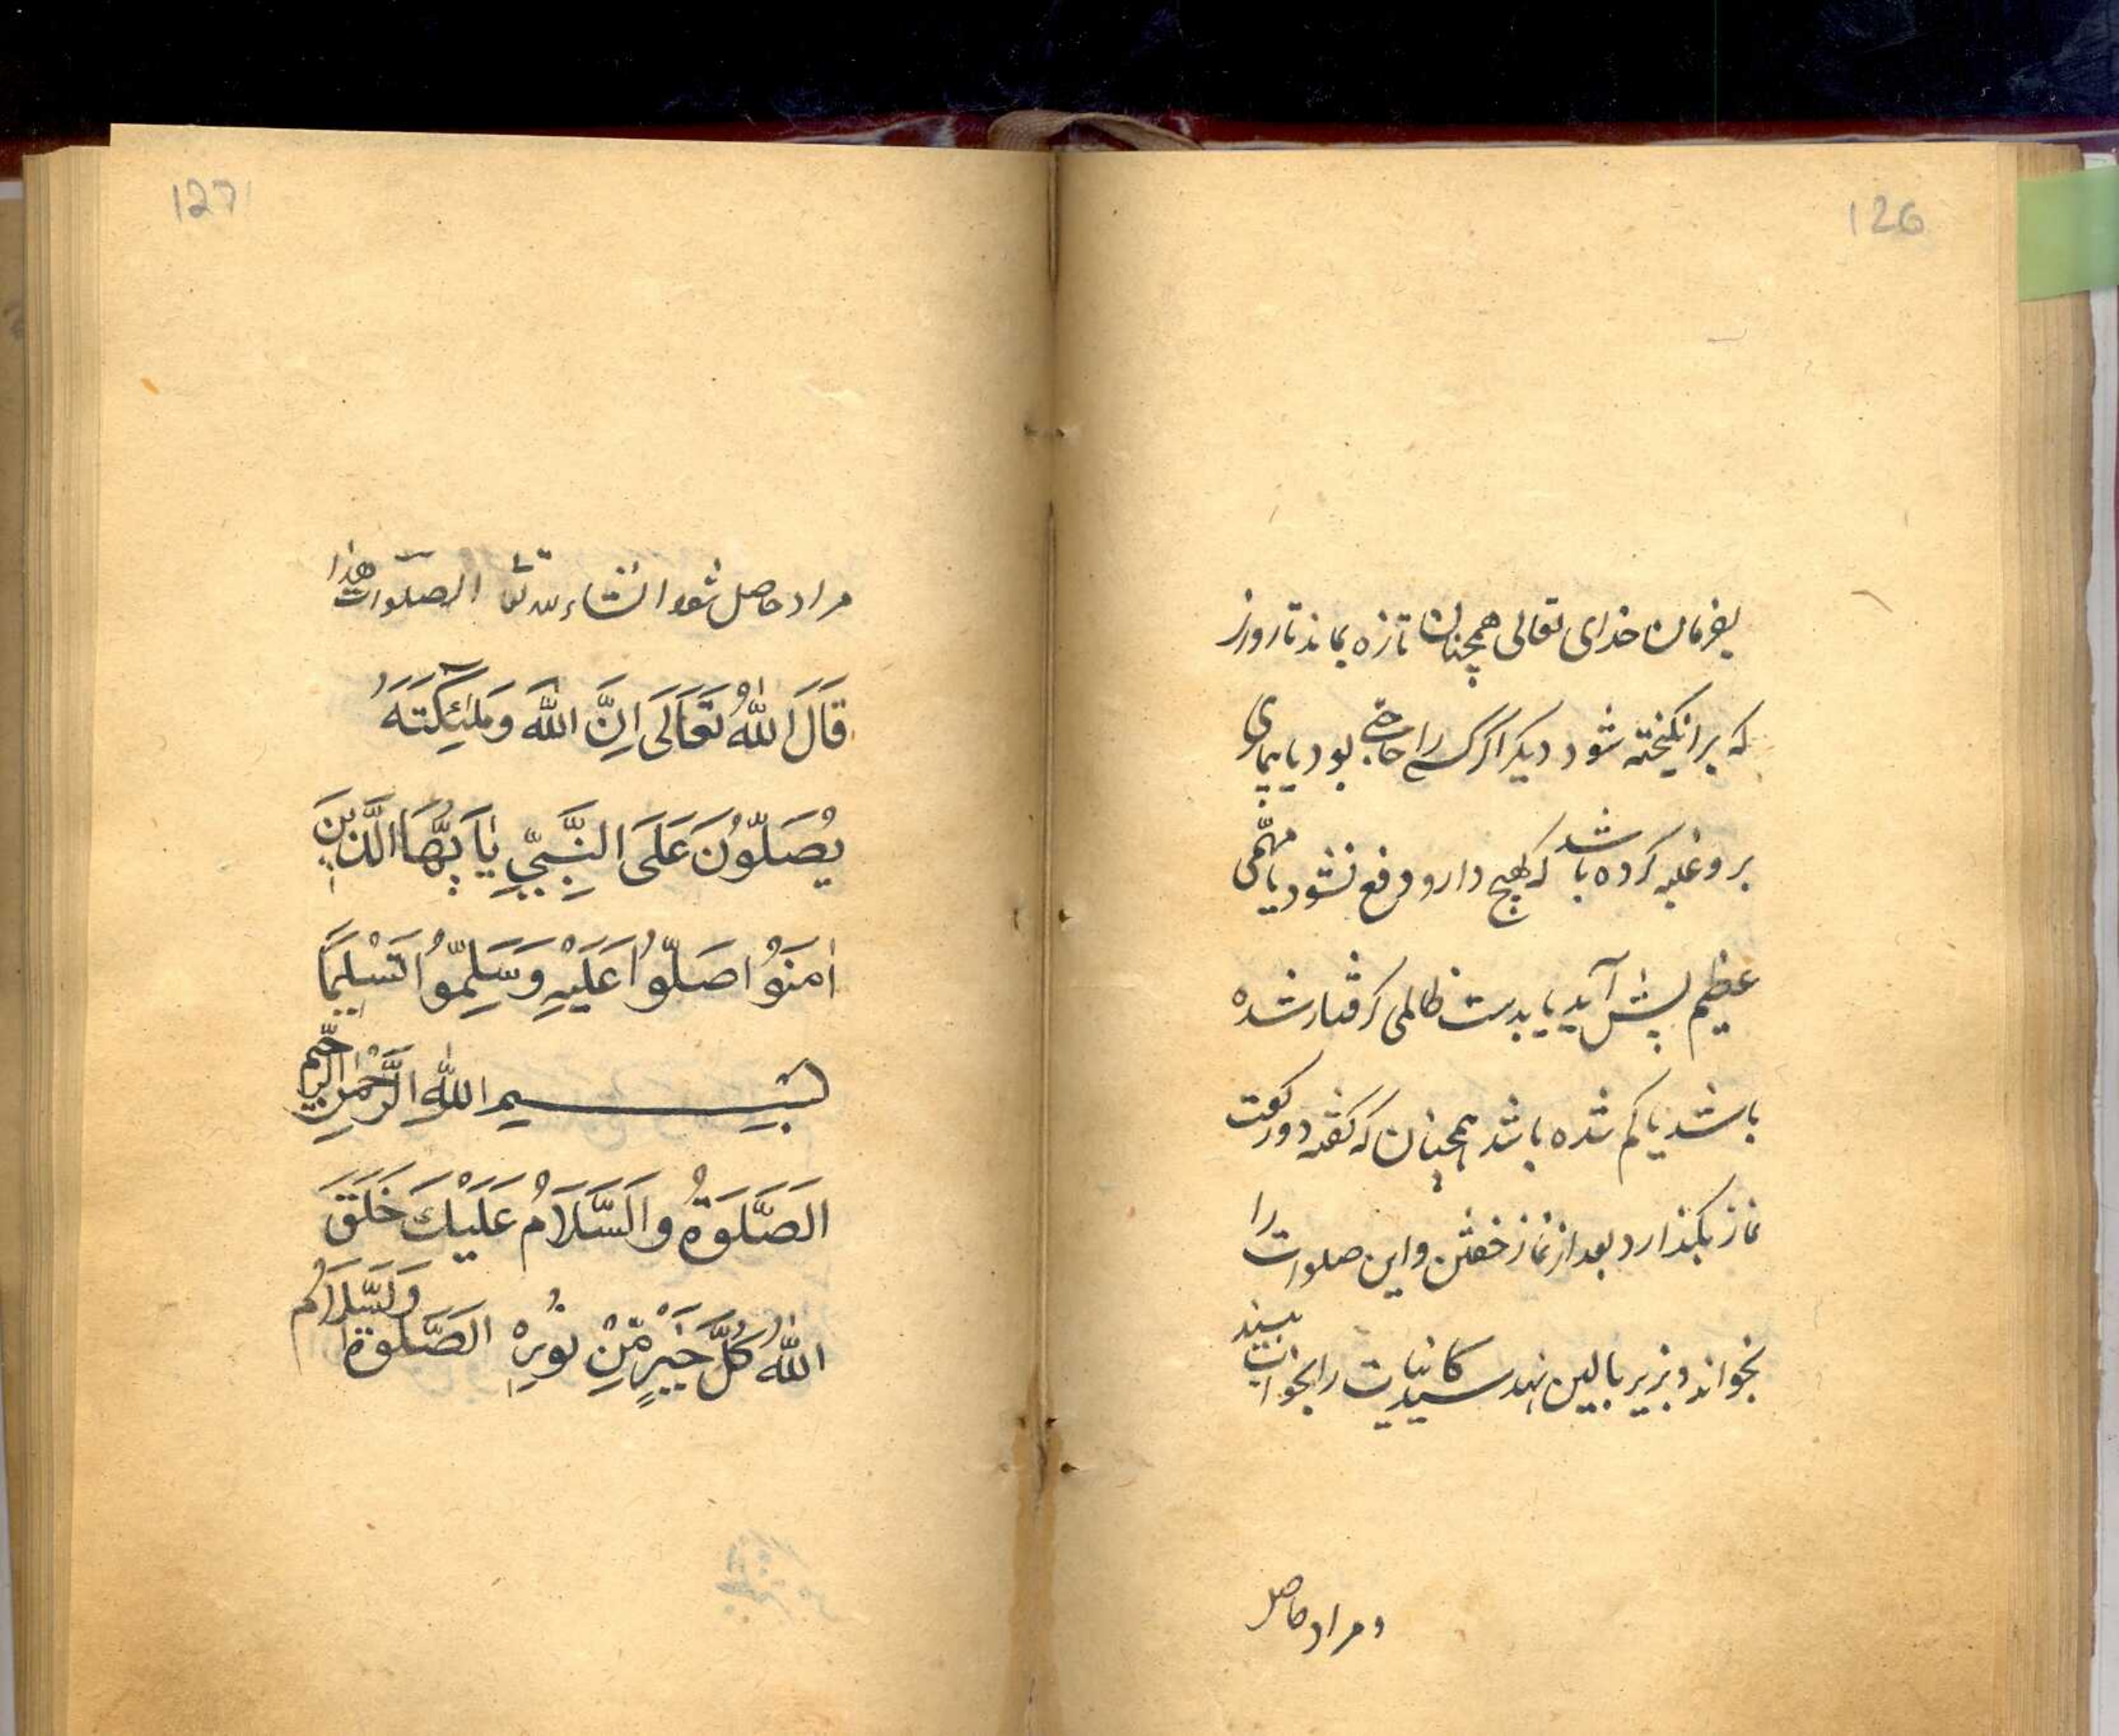 126
بفرمان خدای تعالی همچنان تازه بماند تا روز
که برانکیخته شود دیکر اکر کسے را حاجتے بود یا بیماری
برو غلبه کرده باشد که بهیچ دارو دفع نشود یا مهمّی
عظیم پیش آید یا بدست ظالمی کرفتار شده
باشد یا کم شده باشد همچنان که کفته دو رکعت
نماز بکذارد بعد از نماز خفتن و این صلوات را
بخواند و بزیر بالین نهد سید کانیات را بخواب بیند
و مراد حاصل
127
مراد حاصل شود انشاء لله تعا الصلوات هذا
قَالَ اللهُ تَعَالَى اِنَّ اللهَ وَمَلٰئِكَتَهُ
يُصَلُّوْنَ عَلَى النَّبِيِّ يٰاَيُّهَا الَّذِيْنَ
اٰمَنُوْا صَلُّوْا عَلَيْهِ وَسَلِّمُوْا تَسْلِيْمًا
بِسْمِ اللهِ الرَّحْمٰنِ الرَّحِيْم
الَصَّلَوةُ وَالَسَّلَامُ عَلَيْكَ خَلَقَ
اللهُ كُلَّ خَيْرٍ مِّنْ نُوْرِهْ الَصَّلَوةُ وَلَسَّلَامُ